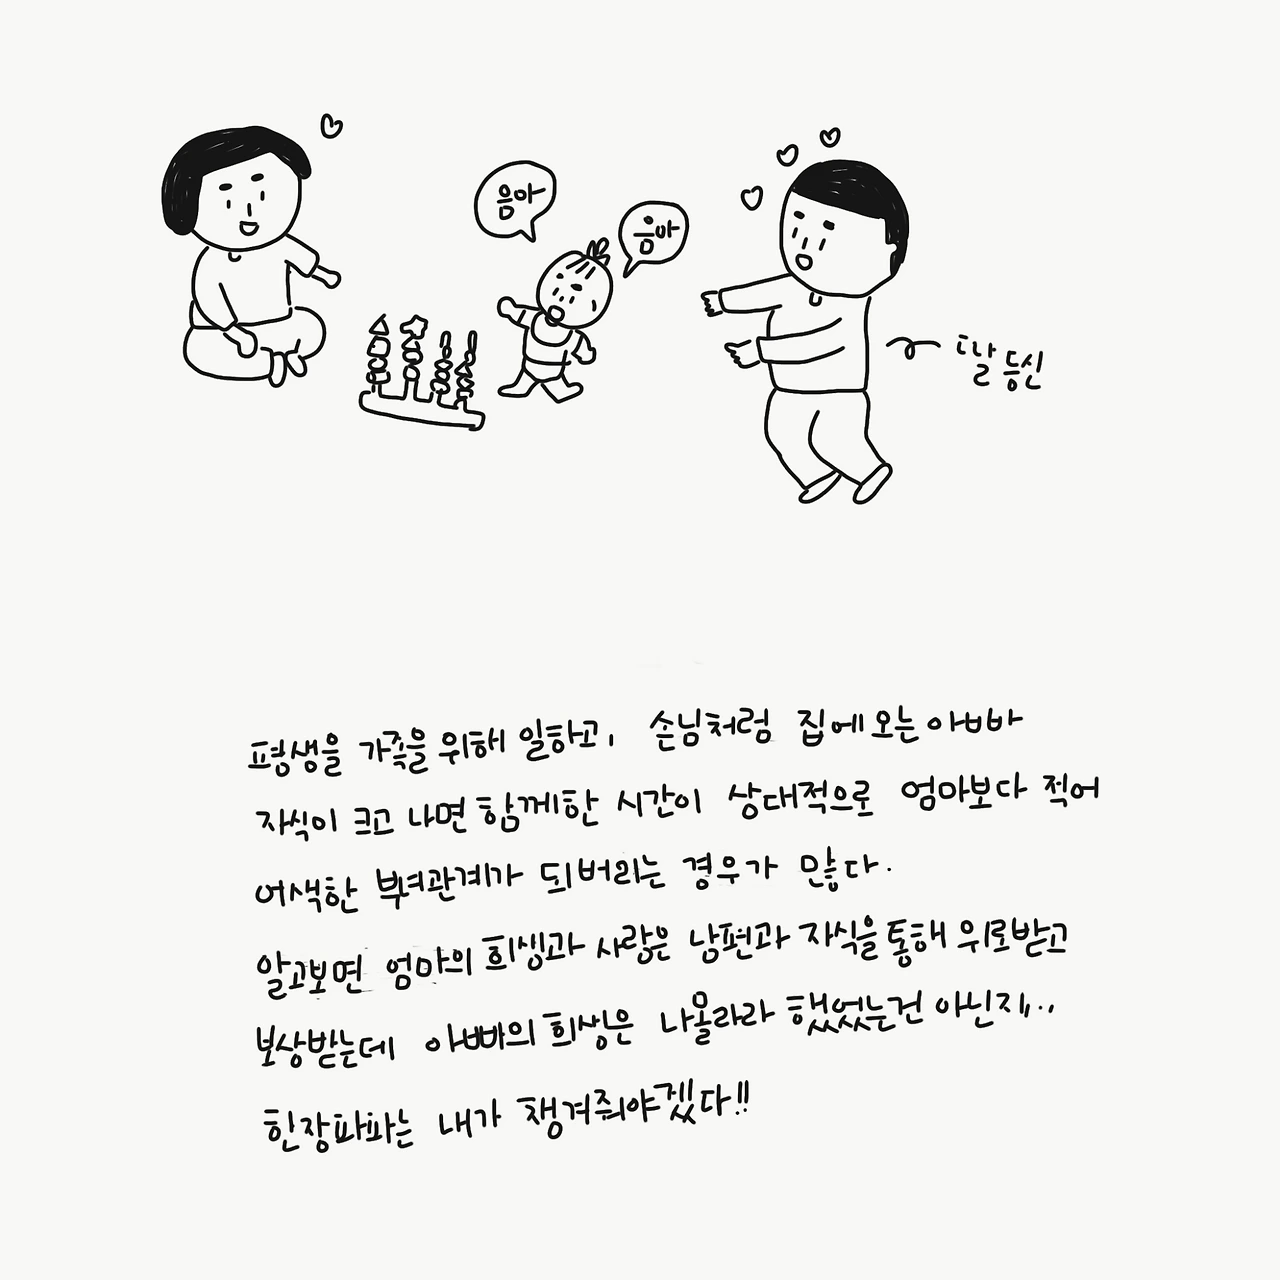 음마
음마
딸등신
평생을 가족을 위해 일하고, 손님처럼 집에 오는 아빠
자식이 크고 나면 함께한 시간이 상대적으로 엄마보다 적어
어색한 부녀관계가 되버리는 경우가 많다.
알고보면 엄마의 희생과 사랑은 남편과 자식을 통해 위로받고
보상받는데 아빠의 희생은 나몰라라 했었는건 아닌지..
한장파파는 내가 챙겨줘야겠다!!